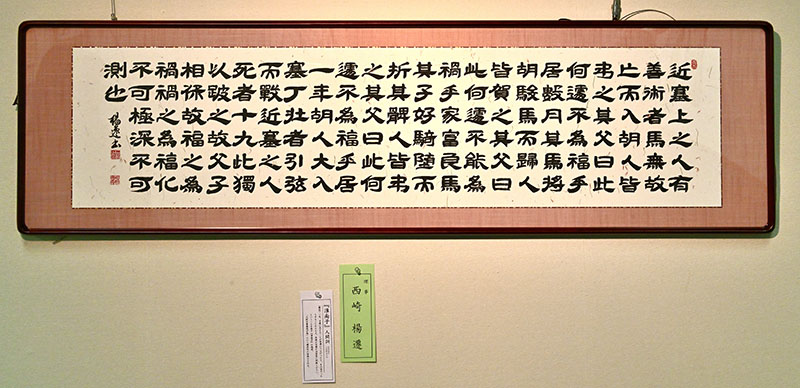 近塞上之人有
善術者馬無故
亡而入胡人皆
弔之其父曰此
何遽不為福乎
居數月其馬將
胡駿馬而歸人
皆賀之其父曰
此何遽不能為
禍乎家富良馬
其子好騎墮而
折其髀人皆弔
之其父曰此何
遽不為福乎居
一年胡人大入
塞丁壯者引弦
而戰近塞之人
死者十九此獨
以跛之故父子
相保故福之為
禍禍之為福化
不可極深不可
測也
楊遷書
理事
西崎 楊遷
『淮南子』人間訓